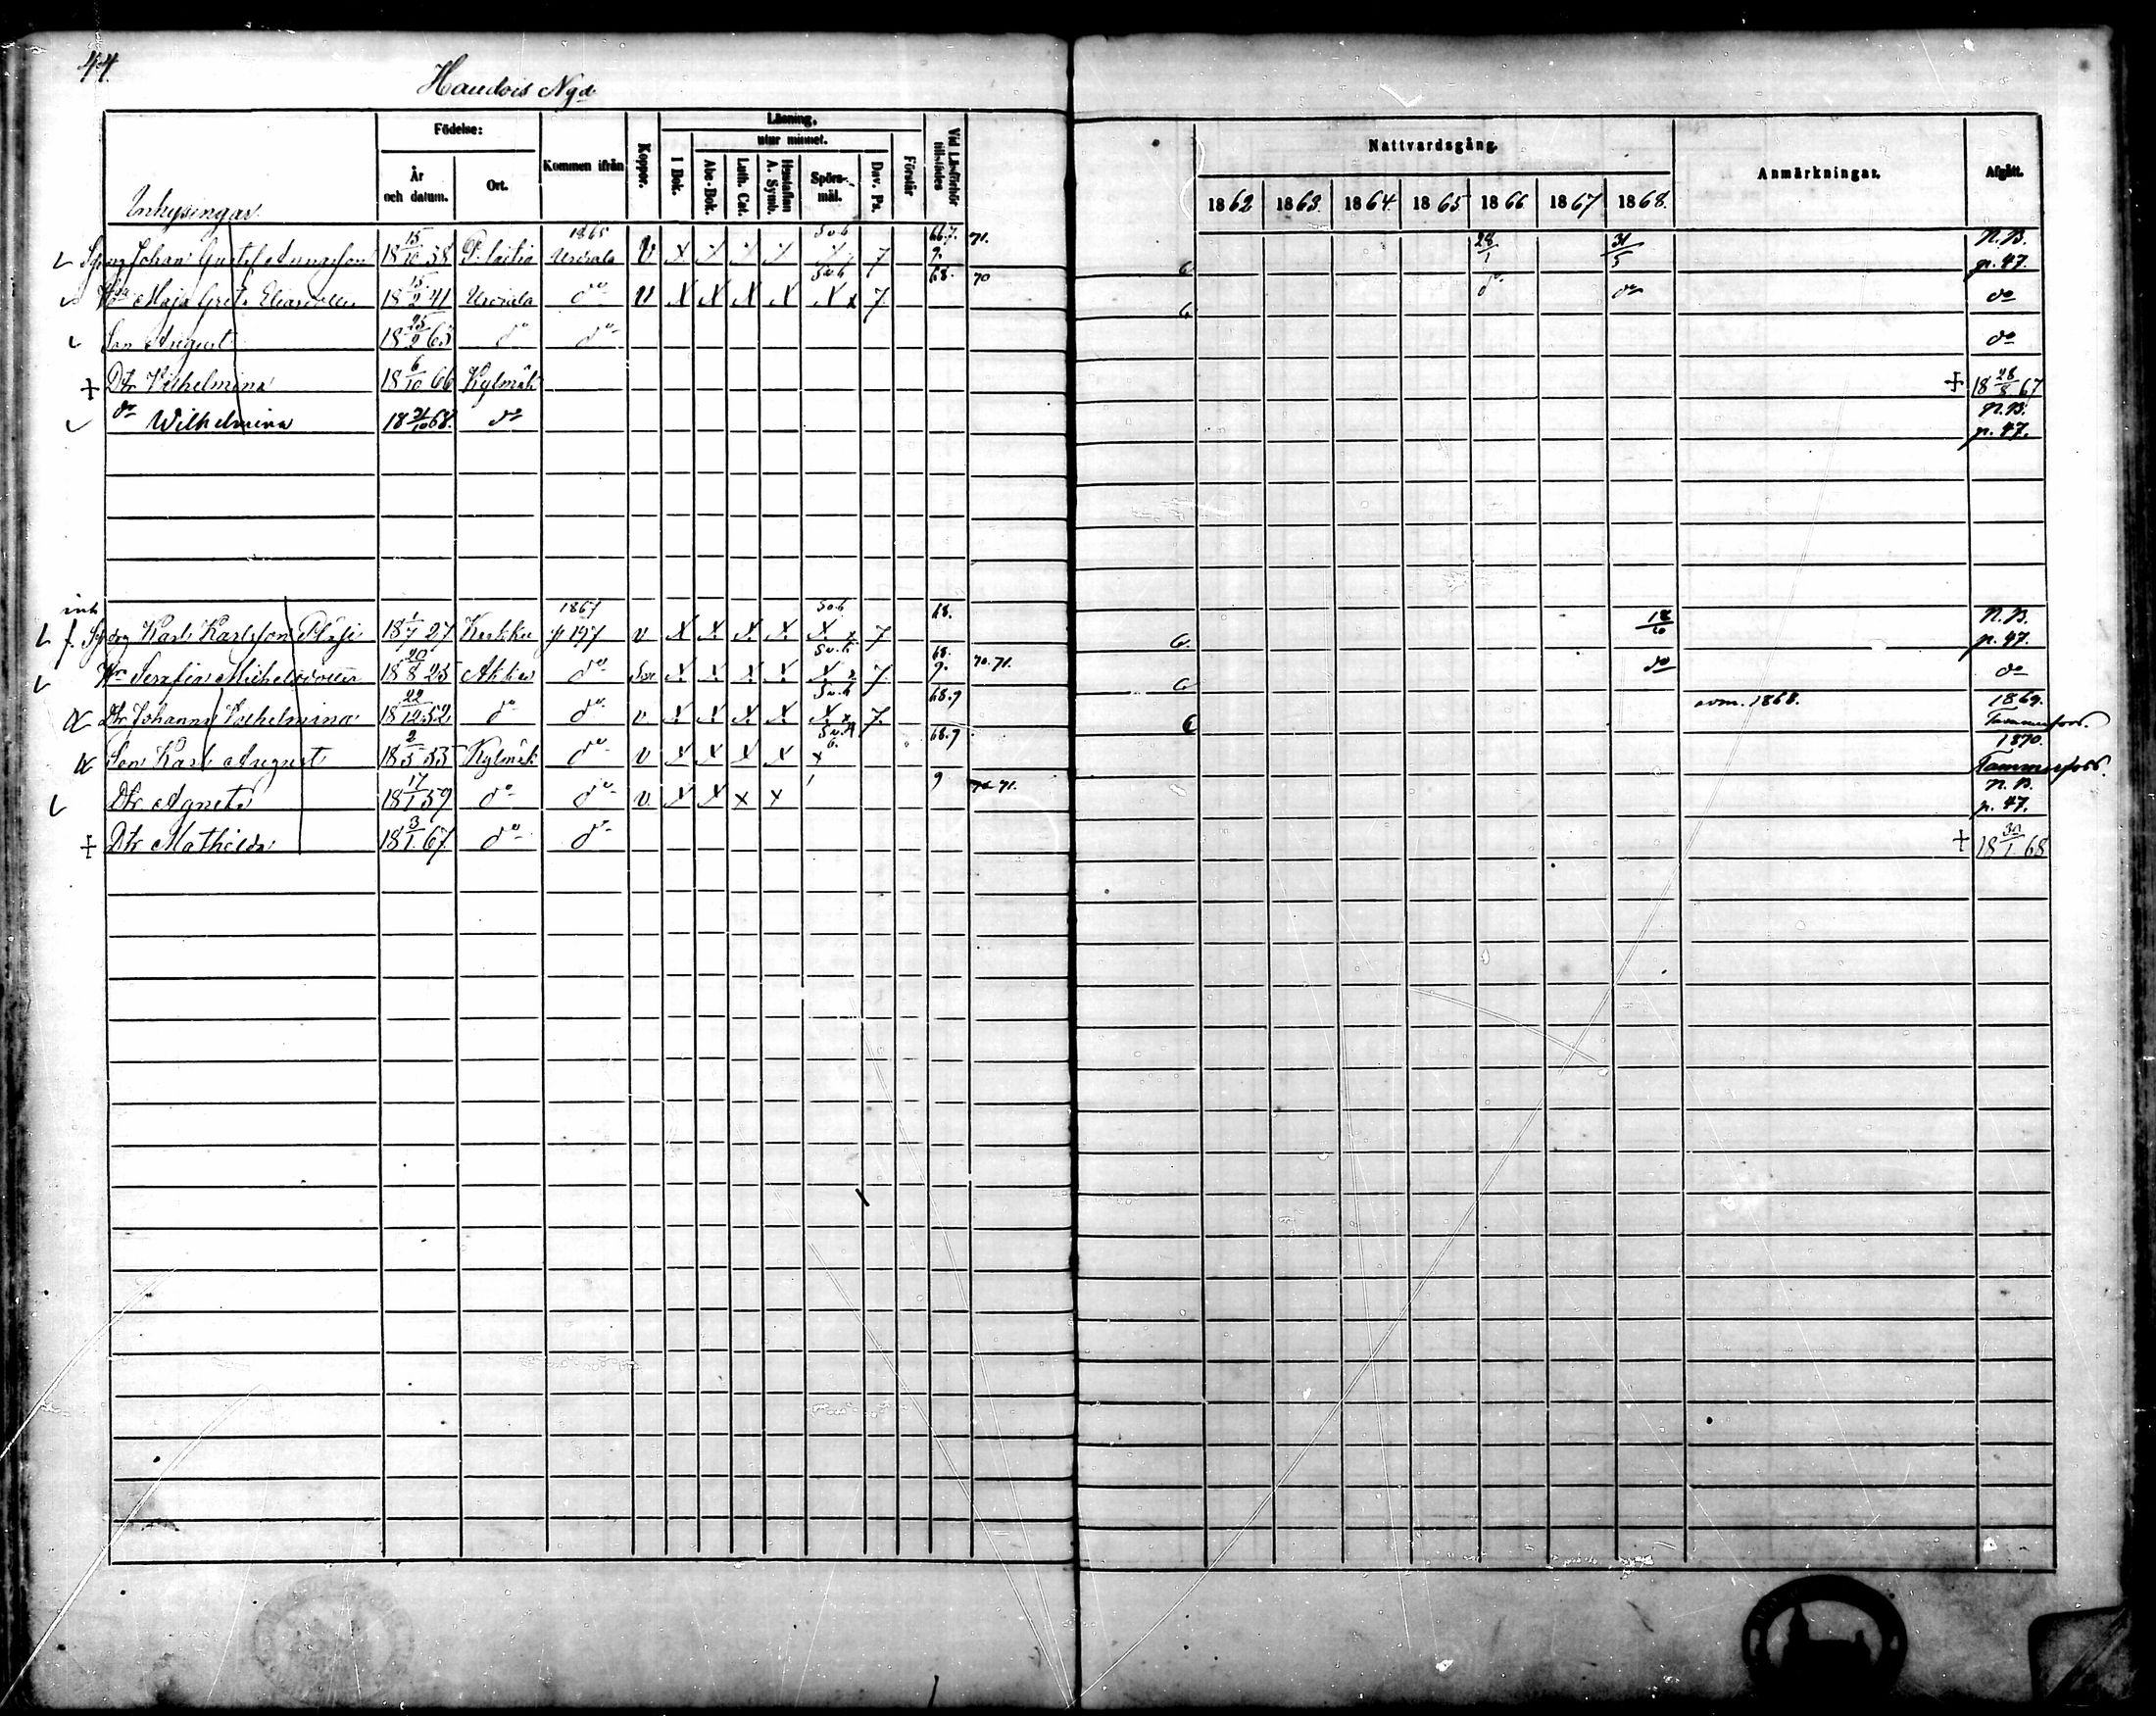 44
Haudois Nyd
Inhysingar
Födelse:
År och datum.
Ort.
Kommen ifrån
Koppor.
Läsning,
I Bok.
utur minnet.
Abc-Bok.
Luth. Cat.
Hustaflan A. Symb.
Spörs-mål.
Dav. Ps.
Förstår
Vid Läsförhör tillstädes
Nattvardsgång.
1862 1863. 1864 1865 1866 1867 1868.
Anmärkningar.
Afgått.
Johan Gustaf 18 15/10 38 1865 Urdiala v x x x x x 7 66.7. 9. 71. 28/1 31/5 N.B. p. 47.
Maja Greta Eliasdotter 18 15/2 41 Urdiala do v x x x x x 7. 68. 70 do do do
Son August 18 25/2 65 do do do
+ Dtr Vilhelmina 18 6/10 66 Kylmäk + 18 28/8 67
do Wilhelmina 18 21/10 68. do N.B. p. 47.
inh
Karl Karlsson 18 1/7 27 1867 p 197 v x x x x x 7 68. 18/10 N.B. p. 47.
Serafia Michelsdotter 18 20/8 25 Akkas do x x x x x 7. 68. 9. 70.71. do do
Dtr Johanna Vilhelmina 18 22/12 52 do do v. x x x x x 7. 68.9 adm. 1868. 1869. Tammerfors.
Son Karl August 18 2/5 55 Kylmäk do v x x x x x 68.9 1870. Tammerfors.
Dtr Agneta 18 17/1 59 do do v. x x x x 9 71. N.B. p. 47.
+ Dtr Mathilda 18 3/1 67 do do + 18 30/1 68